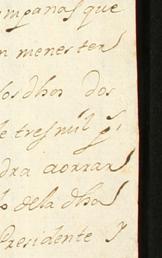 ompanas que
n menester
los dhos dos
e tres mil
dra aorrar
de la dha
Presidente y